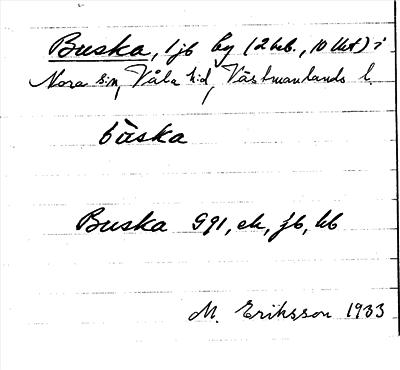 Buska, ljb by (2 hb., 10 lht) i
Nora sn, Våla hd, Västmanlands l.
bùska
Buska GGI, ek, jb, kb
M. Eriksson 1933